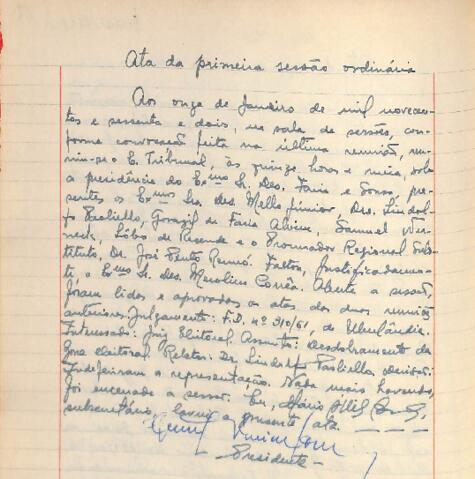 Ata da primeira sessão ordinária
Aos onze de Janeiro de mil novecen-
tos e sessenta e dois, na sala de sessões, con-
forme convocação feita na última reunião, reu-
niu-se o E. Tribunal, às quinze horas e meia, sob
a presidência do Exmo Sr. Des. Faria e Sousa, pre-
sentes os Exmos Srs. des. Mello Júnior, Drs. Lindol-
fo Paoliello, Gorazil de Faria Alvim, Samuel Wer-
neck, Lôbo de Resende e o Procurador Regional Subs-
tituto, Dr. José Bento. Faltou, justificadamen-
te o Exmo Sr. des. Marcelino Corrêa. Aberta a sessão,
foram lidas e aprovadas as atas das duas reuniões
anteriores. Julgamento: F.D. nº 310/61, de Uberlândia.
Interessado: Juiz Eleitoral. Assunto: Desdobramento da
zona eleitoral. Relator: Dr. Lindolfo Paoliello, decisão:
Indeferiram a representação. Nada mais havendo,
foi encerrada a sessão. Eu, Mário
subsecretário, lavrei a presente ata
Presidente